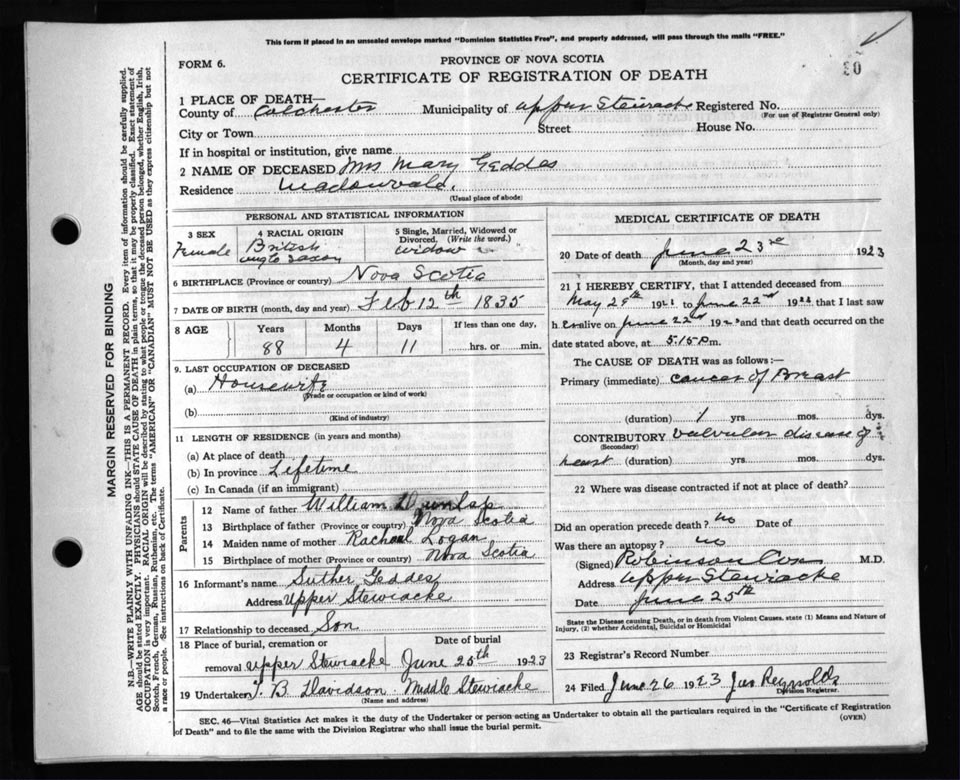 This form if placed in an unsealed envelope marked "Dominion Statistics Free", and properly addressed, will pass through the mails "FREE."
30
FORM 6.
PROVINCE OF NOVA SCOTIA
CERTIFICATE OF REGISTRATION OF DEATH
1 PLACE OF DEATH—
County of Colchester Municipality of Upper Stewiacke Registered No.
(For use of Registrar General only)
City or Town Street House No.
If in hospital or institution, give name
2 NAME OF DECEASED Mrs Mary Geddes
Residence Meadowvale.
(Usual place of abode)
PERSONAL AND STATISTICAL INFORMATION
3 SEX 4 RACIAL ORIGIN 5 Single, Married, Widowed or Divorced. (Write the word.)
Female British widow
Anglo Saxon
6 BIRTHPLACE (Province or country) Nova Scotia
7 DATE OF BIRTH (month, day and year) Feb 12th 1835
8 AGE Years Months Days If less than one day,
88 4 11 hrs. or min.
9. LAST OCCUPATION OF DECEASED
(a) Housewife
(Trade or occupation or kind of work)
(b)
(Kind of industry)
11 LENGTH OF RESIDENCE (in years and months)
(a) At place of death
(b) In province Lifetime
(c) In Canada (if an immigrant)
Parents
12 Name of father William Dunlap
13 Birthplace of father (Province or country) Nova Scotia
14 Maiden name of mother Rachael Logan
15 Birthplace of mother (Province or country) Nova Scotia
16 Informant's name Suther Geddes
Address Upper Stewiacke
17 Relationship to deceased Son
18 Place of burial, cremation or Date of burial
removal Upper Stewiacke June 25th 1923
19 Undertaker B Davidson Middle Stewiacke
(Name and address)
MEDICAL CERTIFICATE OF DEATH
20 Date of death June 23rd 1923
(Month, day and year)
21 I HEREBY CERTIFY, that I attended deceased from
May 29th 192 to June 22nd 192 that I last saw
her alive on June 22nd 192 and that death occurred on the
date stated above, at 5.15 p.m.
The CAUSE OF DEATH was as follows:—
Primary (immediate) cancer of Breast
(duration) 1 yrs. mos. dys.
CONTRIBUTORY valvular disease of
(Secondary)
heart (duration) yrs. mos. dys.
22 Where was disease contracted if not at place of death?
Did an operation precede death? no Date of
Was there an autopsy? no
(Signed) Robinson Cox M.D.
Address Upper Stewiacke
Date June 25th
State the Disease causing Death, or in death from Violent Causes, state (1) Means and Nature of
Injury, (2) whether Accidental, Suicidal or Homicidal
23 Registrar's Record Number
24 Filed June 26 1923 Jas Reynolds
Division Registrar.
SEC. 46—Vital Statistics Act makes it the duty of the Undertaker or person acting as Undertaker to obtain all the particulars required in the "Certificate of Registration
of Death" and to file the same with the Division Registrar who shall issue the burial permit.
(OVER)
MARGIN RESERVED FOR BINDING
N.B.—WRITE PLAINLY WITH UNFADING INK—THIS IS A PERMANENT RECORD. Every item of information should be carefully supplied.
AGE should be stated EXACTLY. PHYSICIANS should STATE CAUSE OF DEATH in plain terms, so that it may be properly classified. Exact statement of
OCCUPATION is very important. RACIAL ORIGIN will be described by stating to what people or tongue the deceased person belonged, whether English, Irish,
Scotch, French, German, Russian, Ruthenian, etc. The terms "AMERICAN" OR "CANADIAN" MUST NOT BE USED as they express citizenship but not
a race or people. See instructions on back of Certificate.